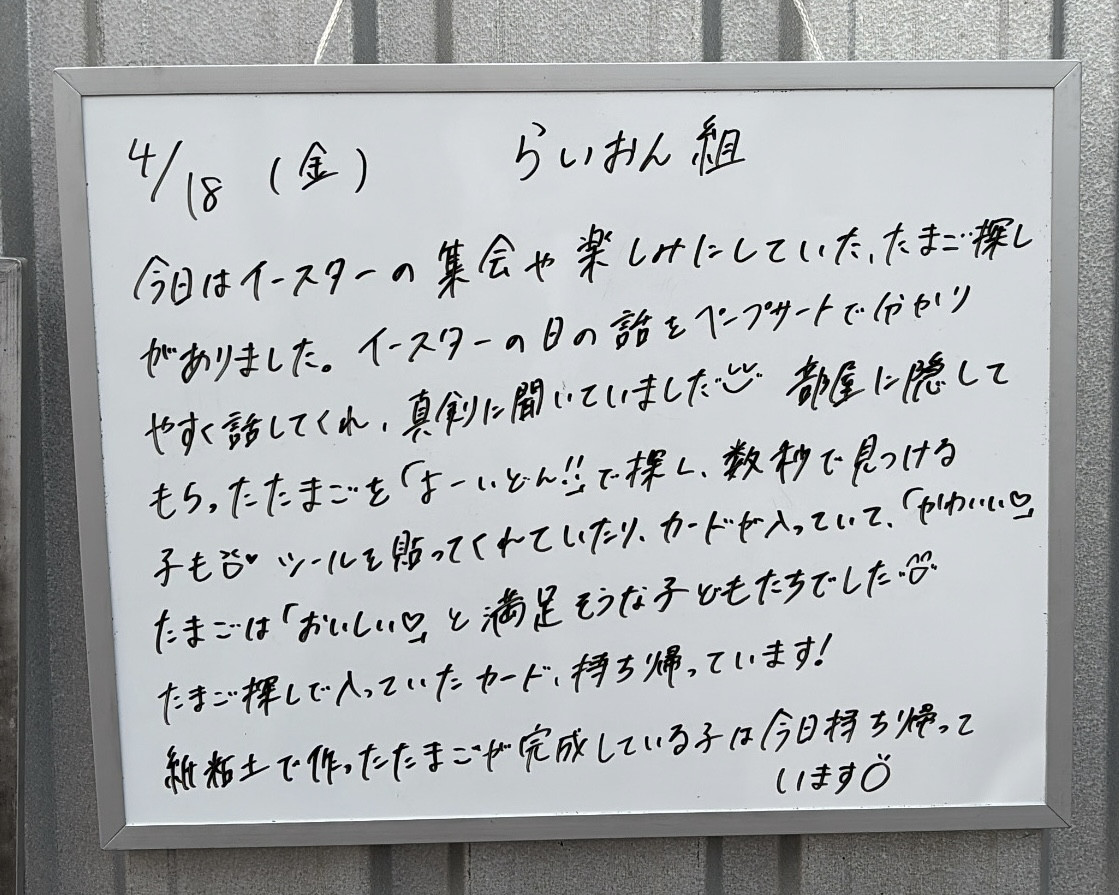 4/18 (金) らいおん組
今日はイースターの集会や楽しみにしていた、たまご探し
がありました。イースターの日の話をペープサートで分かり
やすく話してくれ、真剣に聞いていました
部屋に隠して
もらったたまごを「よーいどん!!」で探し、数秒で見つける
子も♡ シールを貼ってくれていたり、カードが入っていて、「かわいい♡」
たまごは「おいしい♡」と満足そうな子どもたちでした
たまご探しで入っていたカード、持ち帰っています!
紙粘土で作ったたまごが完成している子は今日持ち帰って
います